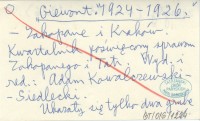 "Giewont." 1924-1926.
- Zakopane i Kraków.
Kwartalnik poświęcony sprawom
Zakopanego i Tatr. Wyd. i
red.: Adam Kowalczewski
- Siedlecki.
Ukazały się tylko dwa